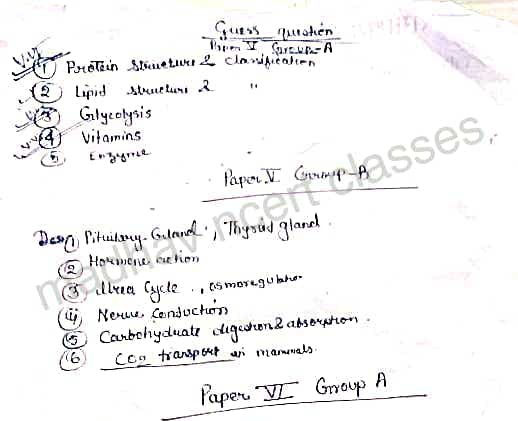 Guess question
Paper V Group-A
V.V.I
① Protein structure & classification
② Lipid structure & "
③ Glycolysis
④ Vitamins
⑤ Enzyme
Paper V Group-A
① Pituitary Gland, Thyroid gland.
② Hormone action
③ Urea Cycle, osmoregulation
④ Nerve Conduction
⑤ Carbohydrate digestion & absorption.
⑥ CO2 transport in mammals.
Paper VI Group A
madhav ncert classes